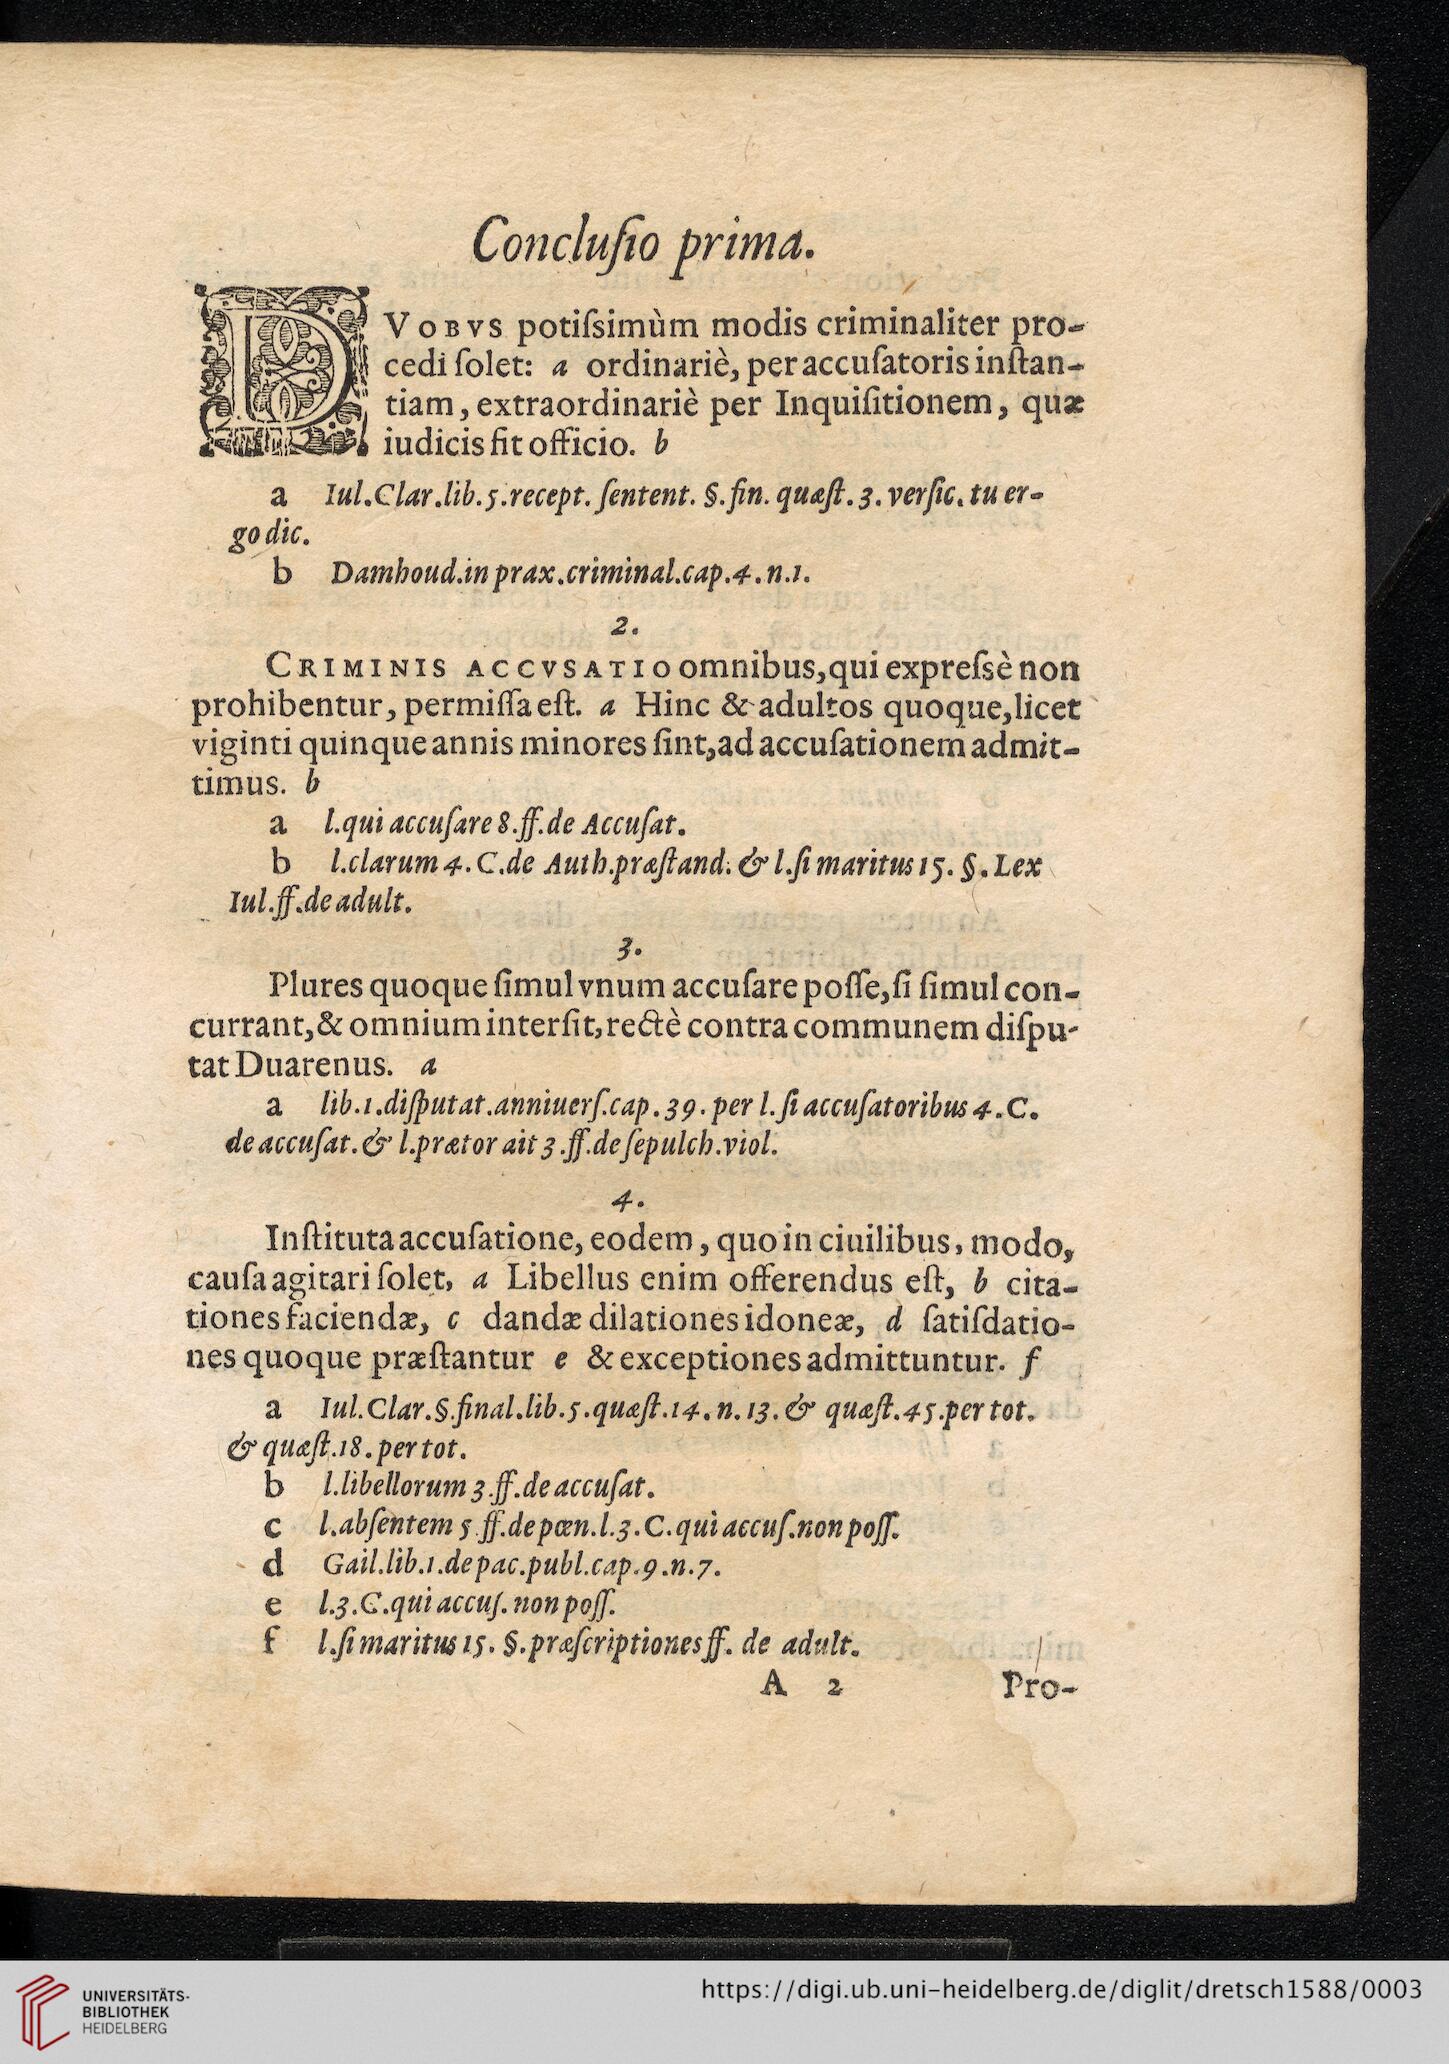 Concluſio prima.
DVOBVS potiſsimùm modis criminaliter pro-
cedi ſolet: a ordinariè, per accuſatoris inſtan-
tiam, extraordinariè per Inquiſitionem, quæ
iudicis fit officio. b
a Iul.Clar.lib.5.recept. ſentent. §. fin. quæſt. 3. verſic. tu er-
go dic.
b Damhoud.in prax.criminal.cap.4.n.1.
2.
CRIMINIS ACCVSATIO omnibus, qui expreſsè non
prohibentur, permiſſa eſt. a Hinc & adultos quoque, licet
viginti quinque annis minores ſint, ad accuſationem admit-
timus. b
a l.qui accuſare 8.ff.de Accuſat.
b l.clarum 4. C.de Auth.præſtand. & l.ſi maritus 15. §. Lex
Iul.ff.de adult.
3.
Plures quoque ſimul vnum accuſare poſſe, ſi ſimul con-
currant, & omnium interſit, rectè contra communem diſpu-
tat Duarenus. a
a lib.1.diſputat.anniuerſ.cap.39. per l. ſi accuſatoribus 4. C.
de accuſat. & l.prætor ait 3.ff.de ſepulch.viol.
4.
Inſtituta accuſatione, eodem, quo in ciuilibus, modo,
cauſa agitari ſolet, a Libellus enim offerendus eſt, b cita-
tiones faciendæ, c dandæ dilationes idoneæ, d ſatiſdatio-
nes quoque præſtantur e & exceptiones admittuntur. f
a Iul.Clar.§.final.lib.5.quæſt.14.n.13. & quæſt.45.per tot.
& quæſt.18.per tot.
b l.libellorum 3.ff.de accuſat.
c l.abſentem 5.ff.de pœn.l.3.C.qui accuſ.non poſſ.
d Gail.lib.1.de pac.publ.cap.9.n.7.
e l.3.C.qui accuſ. non poſſ.
f l.ſi maritus 15. §.præſcriptiones ff. de adult.
A 2 Pro-
UNIVERSITÄTS-
BIBLIOTHEK
HEIDELBERG
https://digi.ub.uni-heidelberg.de/diglit/dretsch1588/0003